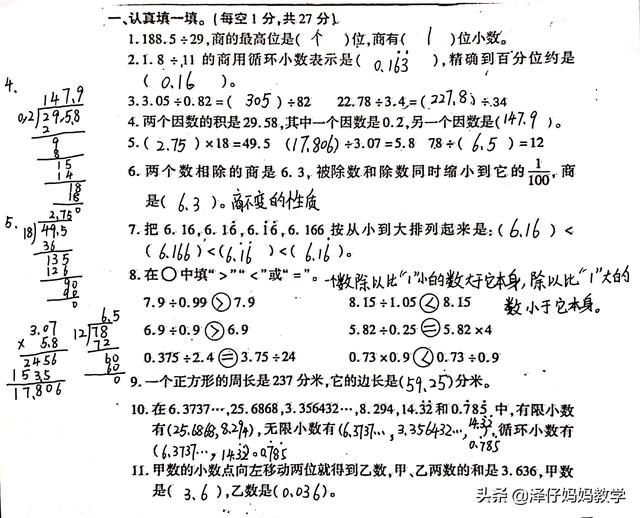 一、认真填一填。(每空1分,共27分)
1.188.5÷29,商的最高位是( 个 )位,商有( 1 )位小数。
2.1.8÷11的商用循环小数表示是( 0.16̇3̇ ),精确到百分位约是
( 0.16 )。
4.
147.9
0.2 29.58
2
9
8
15
14
18
18
0
3.3.05÷0.82=( 305 )÷82 22.78÷3.4=( 227.8 )÷34
4.两个因数的积是29.58,其中一个因数是0.2,另一个因数是( 147.9 )。
5.( 2.75 )×18=49.5 ( 17.806 )÷3.07=5.8 78÷( 6.5 )=12
6.两个数相除的商是6.3,被除数和除数同时缩小到它的1/100,商
是( 6.3 )。商不变的性质
5.
2.75
18 49.5
36
135
126
90
90
0
7.把6.16,6.16̇,6.1̇6̇,6.166按从小到大排列起来是:( 6.16 )<
( 6.166 )<( 6.1̇6̇ )<( 6.16̇ )。
8.在○中填“>”“<”或“=”。一个数除以比“1”小的数大于它本身,除以比“1”大的
数小于它本身。
7.9÷0.99 > 7.9 8.15÷1.05 < 8.15
6.9÷0.9 > 6.9 5.82÷0.25 = 5.82×4
0.375÷2.4 = 3.75÷24 0.73×0.9 < 0.73÷0.9
3.07
× 5.8
2456
1535
17.806
6.5
12 78
72
60
60
0
9.一个正方形的周长是237分米,它的边长是( 59.25 )分米。
10.在6.3737…,25.6868,3.356432…,8.294,14.3̇2̇和0.7̇85̇中,有限小数
有( 25.6868,8.294 ),无限小数有( 6.3737…,3.356432…,14.3̇2̇,0.785 ),循环小数有
( 6.3737…,14.3̇2̇,0.785 )
11.甲数的小数点向左移动两位就得到乙数,甲、乙两数的和是3.636,甲数
是( 3.6 ),乙数是( 0.036 )。
头条@泽仔妈妈教学